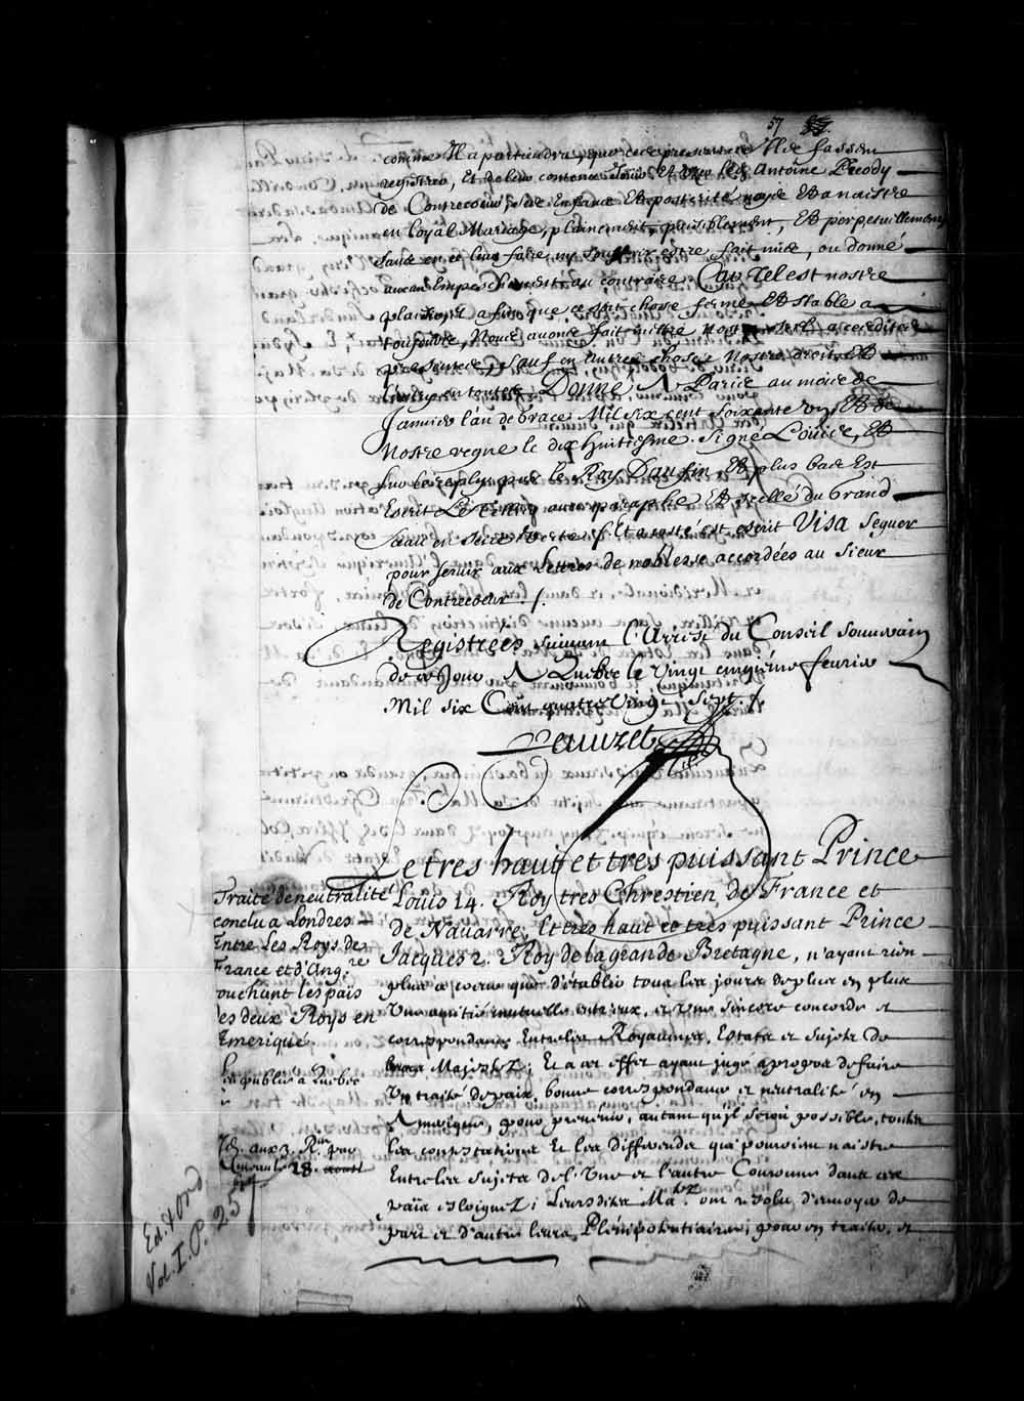 57
comme Il apartiendra, que ces presentes Ils fassent
registrer, Et de leur contenu Jouir Et user led. Antoine Pecody
de Contrecoeur, ses Enfans Et posterité nayz Et a naistre
en loyal Mariage, plainement, paisiblement, Et perpetuellement
sans en ce leur faire, ny souffrir estre fait mis, ou donné
aucun Empeschement au contraire. Car Tel est nostre
plaisir, Et afin que ce soit chose ferme Et stable a
tousjours, Nous avons fait mettre nostre scel a cesdites
presentes, sauf en autres choses nostre droit Et
l'autruy en toutes. Donné A Paris au mois de
Janvier l'an de Grace Mil six cent soixante un Et de
Nostre regne le dix huitiesme. Signé Loüis, Et
sur le reply par le Roy Daufin, Et plus bas Est
Escrit Le Tellier avec paraphe Et scellé du Grand
Sceau en cire verte, Et a costé est escrit Visa Seguier
pour servir aux Lettres de noblesse accordées au Sieur
de Contrecoeur ./.
Registrées suivant l'Arrest du Conseil souverain
de ce Jour A Quebec le vingt cinquiéme fevrier
Mil six Cent quatre vingt sept ./.
Peuuret
Traité de neutralité
conclu a Londres
Entre Les Roys de
France et d'Ang.re
ouchant les païs
es deux Roys en
Amerique
publié a Quebec
Id. aux 3. R.
28. aoust
Ed. & Ord
Vol. I. P. 257
Le tres haut et tres puissant Prince
Loüis 14. Roy tres Chrestien de France et
de Navarre, Et tres haut et tres puissant Prince
Jacques 2. Roy de la grande Bretagne, n'ayant rien
plus a coeur que d'établir tous les jours de plus en plus
Une amitié mutuelle entr'eux, et Une sincere concorde et
correspondance Entre les Royaumes, Estats et Sujets de
leurs Majestez; Et a cet effet ayant jugé a propos de faire
Un traité de paix, bonne correspondance et neutralité en
Amerique, pour prevenir, autant qu'jl seroit possible, toutes
les contestations Et les differends qui pourroient naistre
Entre les Sujets de l'Une et l'autre Couronne dans ces
païs Esloignez; Leursdites Ma.tez ont resolu d'envoyer de
part et d'autre leurs Plénipotentiaires, pour en traiter, et